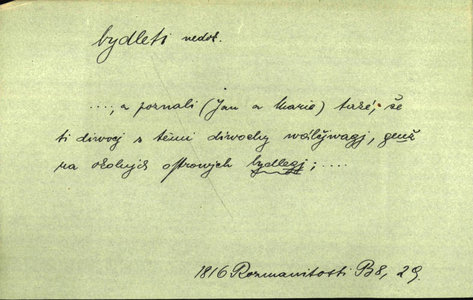 bydleti nedok.
...., a poznali (Jan a Marie) také, že
ti diwocj s těmi diwochy wálčjwagj, genž
na okolnjch ostrowjch bydlegj; ....
1816 Rozmanitosti B8, 29.